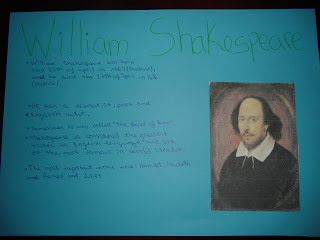 William Shakespeare
• William Shakespeare was born
the of April in
and he died the of April in
He was a dramatist, poet and
English actor.
• Sometimes he was called "the Bard of Avon".
• Shakespeare is considered the greatest
writer in English language and one
of the most famous in world literature.
• The most important works were: Hamlet, Macbeth
and Romeo and Juliet